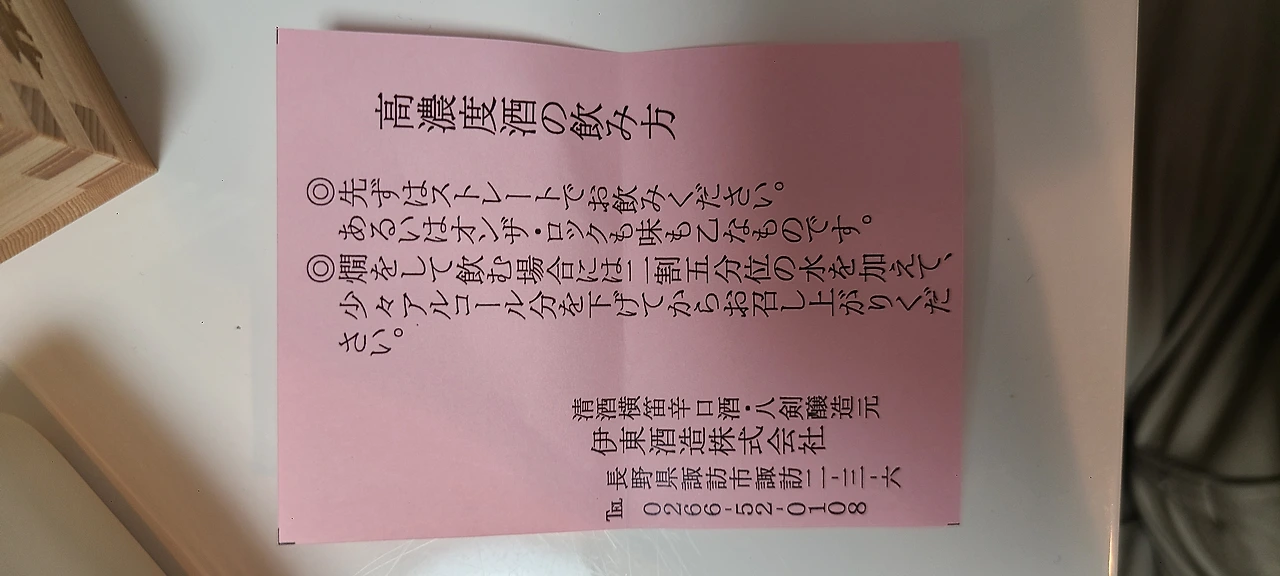 高濃度酒の飲み方
◎先ずはストレートでお飲みください。
あるいはオンザ・ロックも味も乙なものです。
◎燗をして飲む場合には二割五分位の水を加えて、
少々アルコール分を下げてからお召し上がりくだ
さい。
清酒横笛辛口酒・八剣醸造元
伊東酒造株式会社
長野県諏訪市諏訪二-三-六
℡ 0266-52-0108